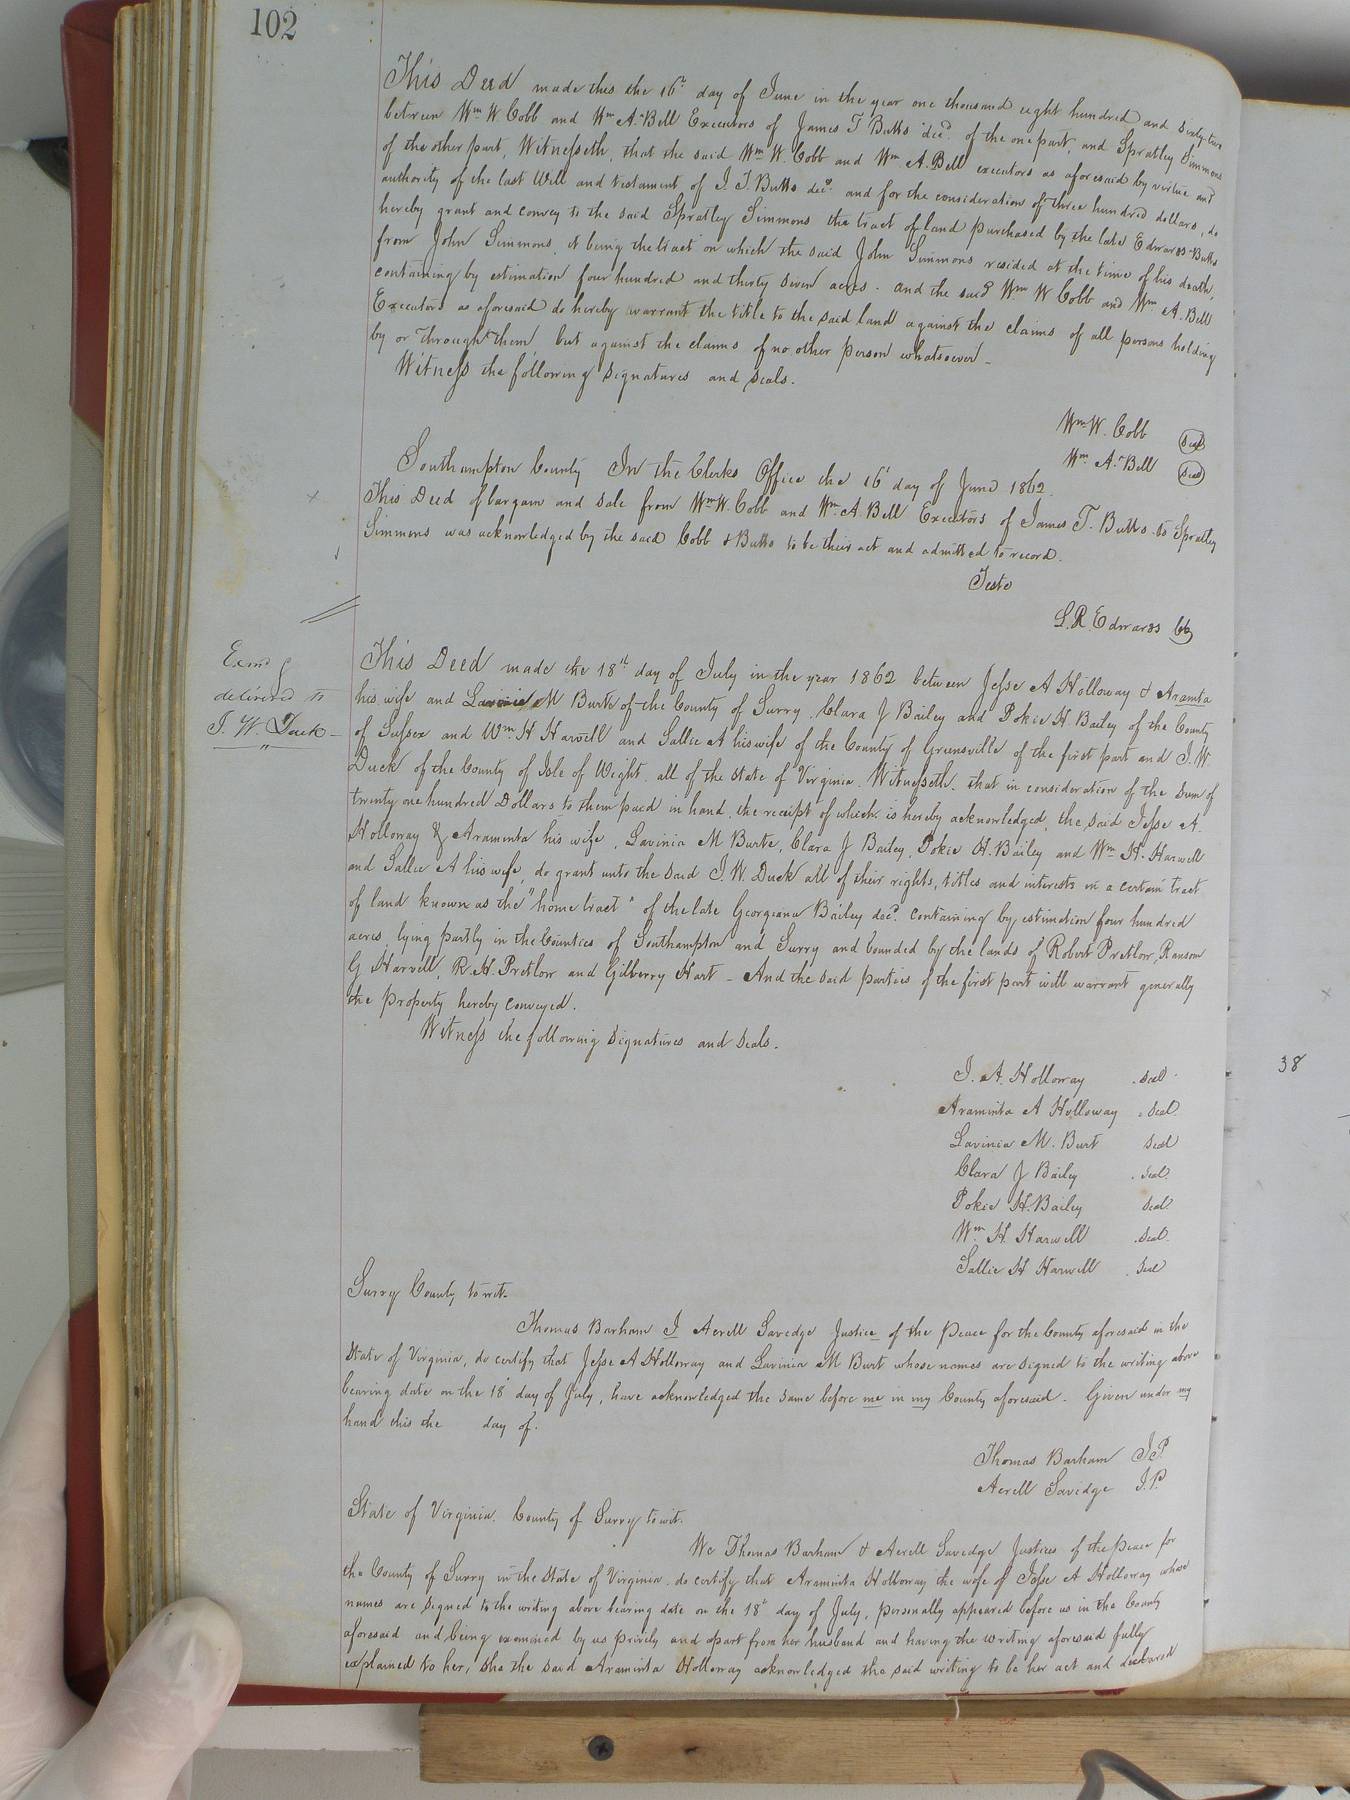 102
This Deed made this the 16th day of June in the year one thousand eight hundred and sixty two
between Wm W. Cobb and Wm A. Bell Executors of James T Butts decd. of the one part, and Spratley Simmons
of the other part, Witnesseth, that the said Wm W. Cobb and Wm A. Bell executors as aforesaid by virtue and
authority of the last Will and testament of J. T. Butts decd. and for the consideration of three hundred dollars, do
hereby grant and convey to the said Spratley Simmons the tract of land purchased by the late Edwards Butts
from John Simmons, it being the tract on which the said John Simmons resided at the time of his death,
containing by estimation four hundred and thirty seven acres. and the said Wm W Cobb and Wm A. Bell
Executors as aforesaid do hereby warrant the title to the said land against the claims of all persons holding
by or through them but against the claims of no other person whatsoever.
Witness the following signatures and seals.
Wm W. Cobb seal
Wm A. Bell seal
Southampton County In the Clerks Office the 16' day of June 1862.
This Deed of bargain and sale from Wm W. Cobb and Wm A. Bell Executors of James T. Butts to Spratley
Simmons was acknowledged by the said Cobb & Butts to be their act and admitted to record.
Teste
L. R. Edwards Clk
Examd &
delivered to
J. W. Duck
This Deed made the 18th day of July in the year 1862 between Jesse A Holloway & Araminta
his wife and Lavinia M Burt of the County of Surry. Clara J Bailey and Pokie H. Bailey of the County
of Sussex and Wm H Harwell and Sallie A his wife of the County of Greensville of the first part and J. W.
Duck of the County of Isle of Wight. all of the state of Virginia. Witnesseth. that in consideration of the sum of
twenty one hundred Dollars to them paid in hand, the receipt of which is hereby acknowledged, the said Jesse A.
Holloway & Araminta his wife, Lavinia M Burt, Clara J Bailey, Pokie H. Bailey and Wm H. Harwell
and Sallie A his wife, do grant unto the said J. W. Duck all of their rights, titles and interests in a certain tract
of land known as the "home tract" of the late Georgeana Bailey decd. containing by estimation four hundred
acres, lying partly in the Counties of Southampton and Surry and bounded by the lands of Robert Pretlow, Ransom
G Harvell, R. H. Pretlow and Gilberry Hart - And the said parties of the first part will warrant generally
the property hereby conveyed.
Witness the following signatures and seals.
J. A. Holloway seal
Araminta A Holloway seal
Lavinia M. Burt seal
Clara J Bailey seal
Pokie H. Bailey seal
Wm H Harwell seal
Sallie H Harwell seal
38
Surry County to wit.
Thomas Barham I Acrell Savedge Justice of the Peace for the County aforesaid in the
State of Virginia, do certify that Jesse A Holloway and Lavinia M Burt whose names are signed to the writing above
bearing date on the 18' day of July, have acknowledged the same before me in my County aforesaid. Given under my
hand this the day of.
Thomas Barham J.P.
Acrell Savedge J.P.
State of Virginia. County of Surry to wit.
We Thomas Barham & Acrell Savedge Justices of the Peace for
the County of Surry in the State of Virginia. do certify that Araminta Holloway the wife of Jesse A Holloway whose
names are signed to the writing above bearing date on the 18' day of July, personally appeared before us in the County
aforesaid and being examined by us privily and apart from her husband and having the writing aforesaid fully
explained to her, she the said Araminta Holloway acknowledged the said writing to be her act and declared